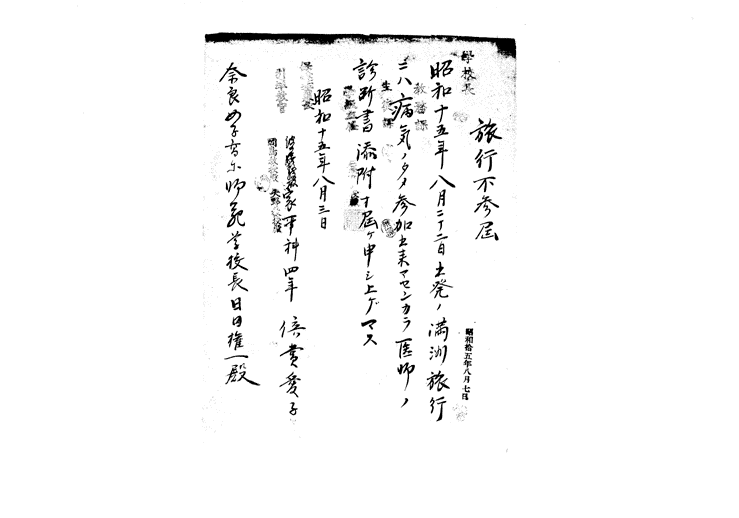 旅行不参届
昭和拾五年八月七日
學校長
昭和十五年八月二十二日出発ノ満洲旅行
ニハ病気ノタメ参加出来マセンカラ医師ノ
診断書添附シ届ケ申シ上ゲマス
昭和十五年八月三日
家事科四年 倍賞愛子
奈良女子高等師範学校長日田権一殿